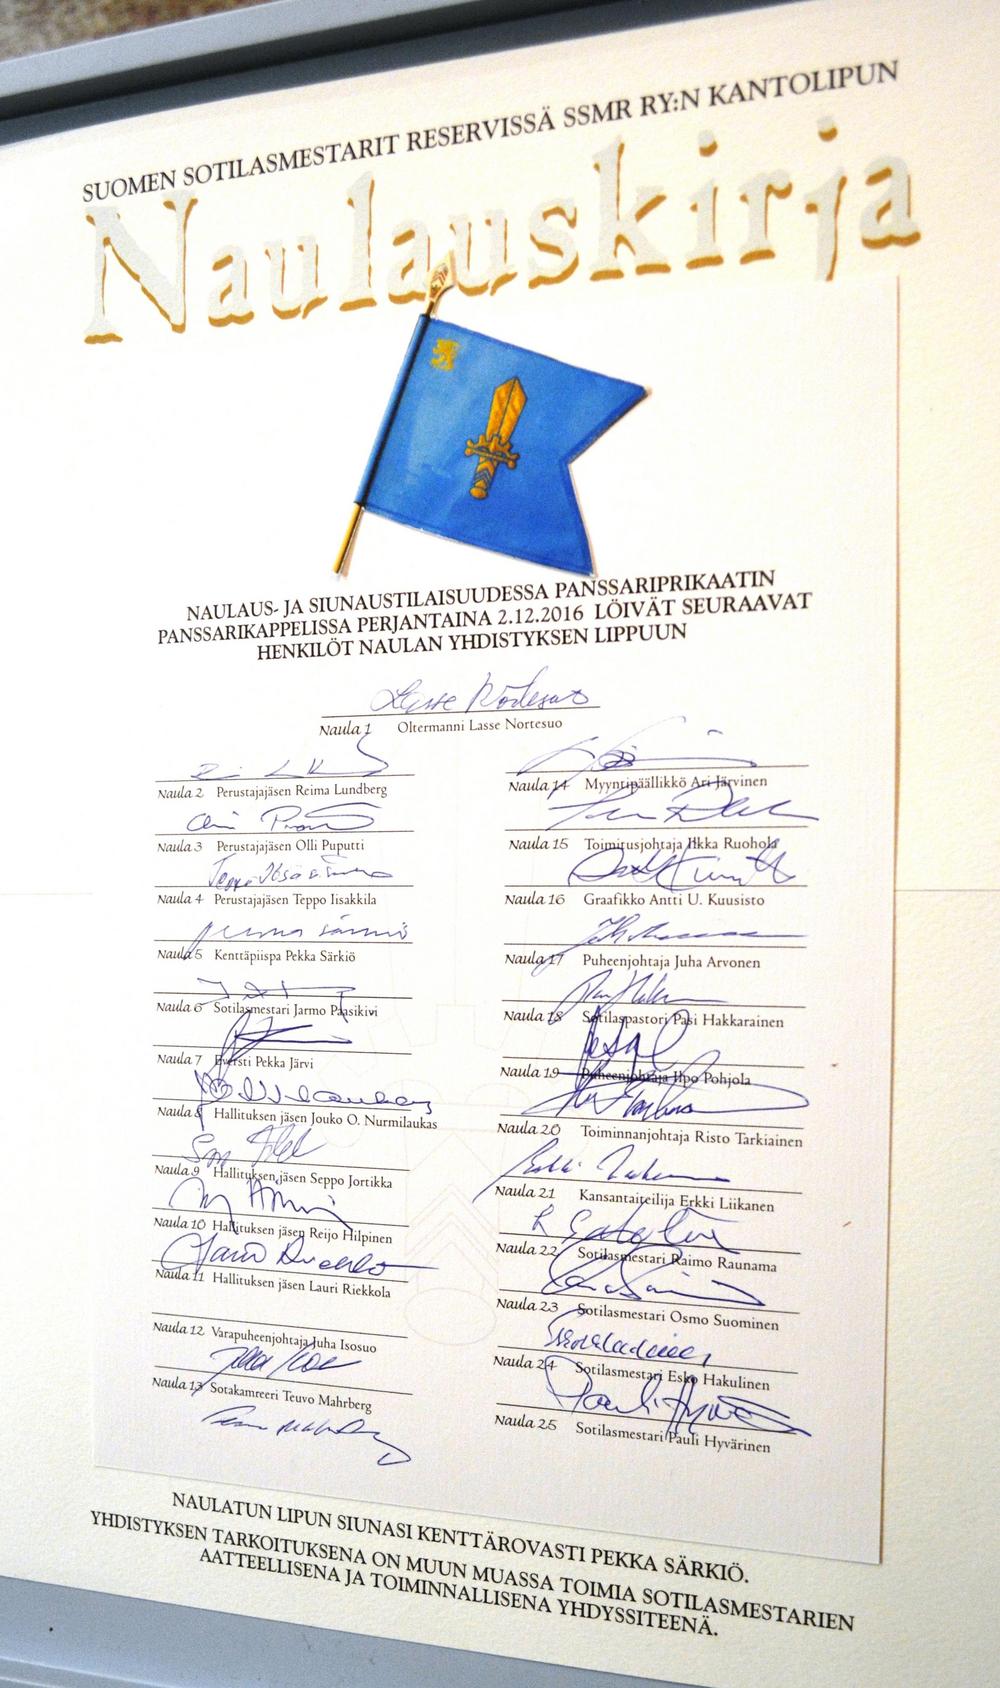 SUOMEN SOTILASMESTARIT RESERVISSÄ SSMR RY:N KANTOLIPUN
Naulauskirja
NAULAUS- JA SIUNAUSTILAISUUDESSA PANSSARIPRIKAATIN
PANSSARIKAPPELISSA PERJANTAINA 2.12.2016 LÖIVÄT SEURAAVAT
HENKILÖT NAULAN YHDISTYKSEN LIPPUUN
Naula 1 Oltermanni Lasse Nortesuo
Naula 2 Perustajajäsen Reima Lundberg
Naula 3 Perustajajäsen Olli Puputti
Naula 4 Perustajajäsen Teppo Iisakkila
Naula 5 Kenttäpiispa Pekka Särkiö
Naula 6 Sotilasmestari Jarmo Paasikivi
Naula 7 Eversti Pekka Järvi
Naula 8 Hallituksen jäsen Jouko O. Nurmilaukas
Naula 9 Hallituksen jäsen Seppo Jortikka
Naula 10 Hallituksen jäsen Reijo Hilpinen
Naula 11 Hallituksen jäsen Lauri Riekkola
Naula 12 Varapuheenjohtaja Juha Isosuo
Naula 13 Sotakamreeri Teuvo Mahrberg
Naula 14 Myyntipäällikkö Ari Järvinen
Naula 15 Toimitusjohtaja Ilkka Ruohola
Naula 16 Graafikko Antti U. Kuusisto
Naula 17 Puheenjohtaja Juha Arvonen
Naula 18 Sotilaspastori Pasi Hakkarainen
Naula 19 Puheenjohtaja Ilpo Pohjola
Naula 20 Toiminnanjohtaja Risto Tarkiainen
Naula 21 Kansantaiteilija Erkki Liikanen
Naula 22 Sotilasmestari Raimo Raunama
Naula 23 Sotilasmestari Osmo Suominen
Naula 24 Sotilasmestari Esko Hakulinen
Naula 25 Sotilasmestari Pauli Hyvärinen
NAULATUN LIPUN SIUNASI KENTTÄROVASTI PEKKA SÄRKIÖ.
YHDISTYKSEN TARKOITUKSENA ON MUUN MUASSA TOIMIA SOTILASMESTARIEN
AATTEELLISENA JA TOIMINNALLISENA YHDYSSITEENÄ.